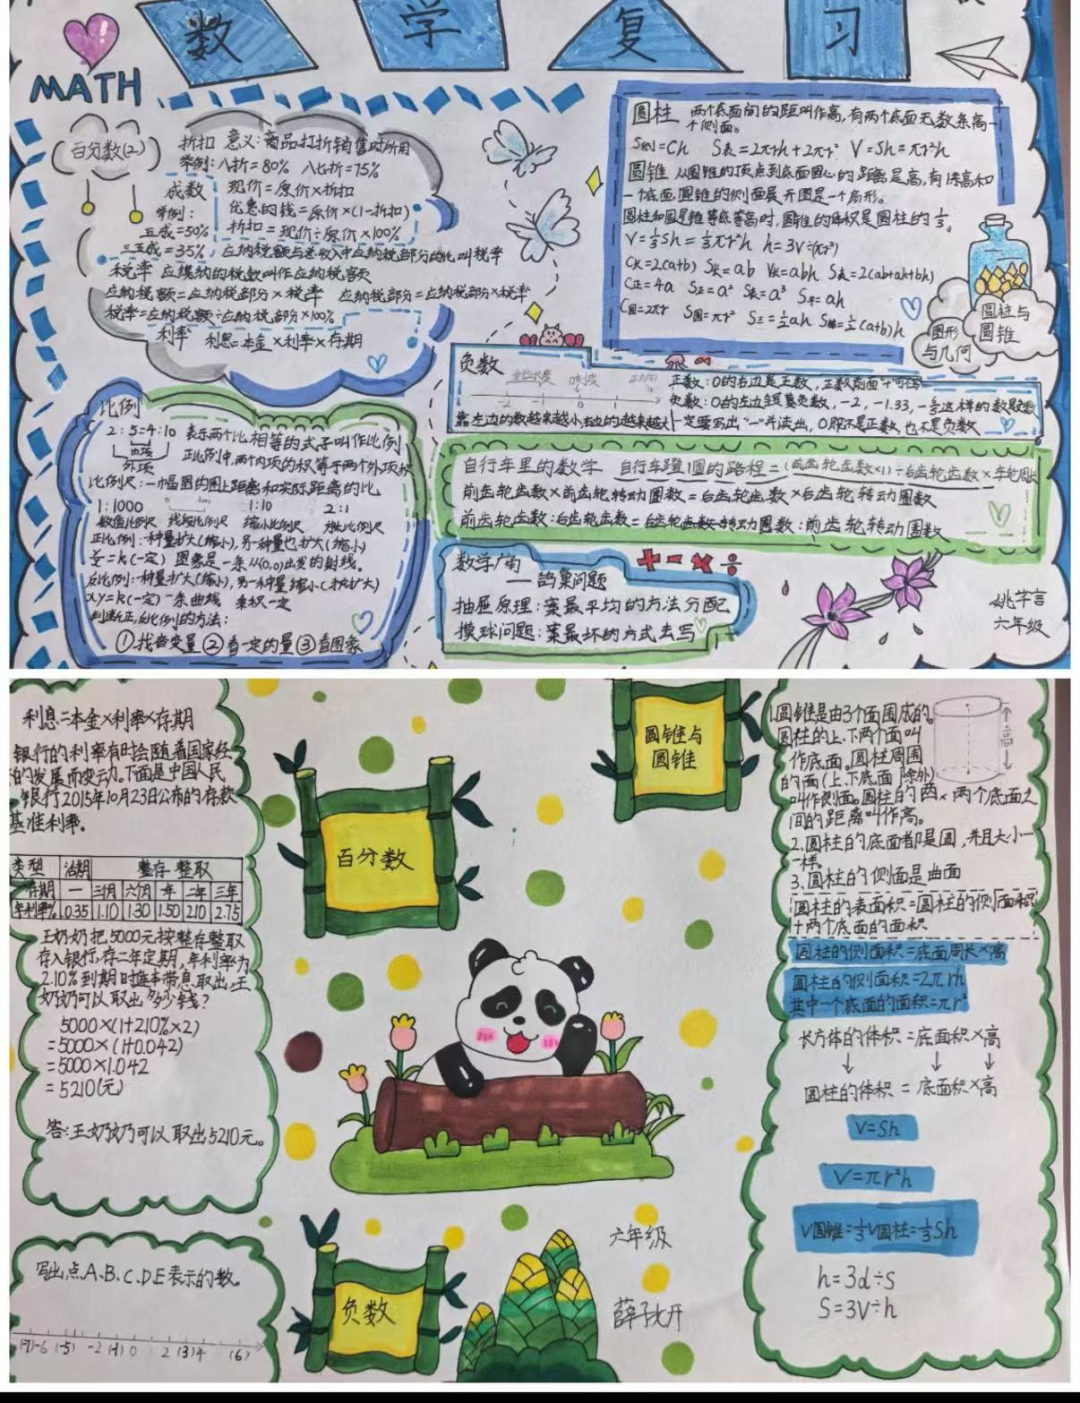 数学复习
MATH
百分数(2)
折扣 意义:商品打折销售时所用
举例:八折=80% 八七折=75%
成数
现价=原价×折扣
举例:
优惠的钱=原价×(1-折扣)
五成=50%
折扣=现价÷原价×100%
三五成=35%
应纳税额与总收入中应纳税部分的比叫税率
税率 应缴纳的税款叫作应纳税额
应纳税额=应纳税部分×税率 应纳税部分=应纳税部分×税率
税率=应纳税额÷应纳税部分×100%
利率 利息=本金×利率×存期
圆柱 两个底面间的距叫作高,有两个底面无数条高一
个侧面。
S侧=Ch S表=2πrh+2πr² V=Sh=πr²h
圆锥 从圆锥的顶点到底面圆心的距离是高,有1条高和
一个底面,圆锥的侧面展开图是一个扇形。
V=⅓Sh=⅓πr²h h=3V÷(πr²)
C长=2(a+b) S长=ab V长=abh S表=2(ab+ah+bh)
C正=4a S正=a² S平=ah
C圆=2πr S圆=πr² S三=½ah S梯=½(a+b)h
图形
与几何
圆柱与
圆锥
负数
正数:0的右边是正数,正数前面"+"可写
负数:0的左边
-2 -1 0 1
靠左边的数越来越小,右边的越来越大
一定要写出"-"并读出,0既不是正数,也不是负数
比例
2:5=4:10 表示两个比相等的式子叫作比例
内项
外项
正比例中,两个内项的积等于两个外项积
比例尺:一幅图的图上距离和实际距离的比
1:1000 1:10 2:1
数值比例尺 线段比例尺 缩小比例尺 放大比例尺
正比例:一种量扩大(缩小),另一种量也扩大(缩小)
=k(一定) 图象是一条从(0,0)出发的射线。
反比例:一种量扩大(缩小),另一种量缩小(扩大)
xy=k(一定)一条曲线 乘积一定
判断正,反比例的方法:
①找音变量②看一定的量③看图象
自行车里的数学 自行车蹬1圈的路程=(前齿轮齿数×1)÷后齿轮齿数×车轮周长
前齿轮齿数×前齿轮转动圈数=后齿轮齿数×后齿轮转动圈数
前齿轮齿数:后齿轮齿数=后齿轮转动圈数:前齿轮转动圈数
数学广角
——鸽巢问题
抽屉原理:案最平均的方法分配
摸球问题:案最坏的方式去写
+ - × ÷
六年级
利息=本金×利率×存期
银行的利率有时会随着国家经
济的发展而变动。下面是中国人民
银行2015年10月23日公布的存款
基准利率。
类型 活期 整存整取
存期 一 三月 六个月 一年 二年 三年
年利率% 0.35 1.10 1.30 1.50 2.10 2.75
王奶奶把5000元按整存整取
存入银行,存二年定期,年利率为
2.10%到期时连本带息取出,王
奶奶可以取出多少钱?
5000×(1+2.10%×2)
=5000×(1+0.042)
=5000×1.042
=5210(元)
答:王奶奶可以取出5210元。
写出,点A、B、C、D、E表示的数。
(-7) -6 (-5) -2 (-1) 0 2 (3) 4 (6)
百分数
圆锥与
圆锥
负数
六年级
1.圆锥是由3个面围成的。
圆柱的上、下两个面叫
作底面。圆柱周围
的面(上、下底面除外)
叫作侧面。圆柱的两个底面之
间的距离叫作高。
高
2.圆柱的底面都是圆,并且大小一
样。
3.圆柱的侧面是曲面
圆柱的表面积=圆柱的侧面积
+两个底面的面积
圆柱的侧面积=底面周长×高
圆柱的侧面积=2πrh
其中一个底面的面积=πr²
长方体的体积=底面积×高
圆柱的体积=底面积×高
V=Sh
V=πr²h
V圆锥=⅓V圆柱=⅓Sh
h=3d÷s
S=3V÷h